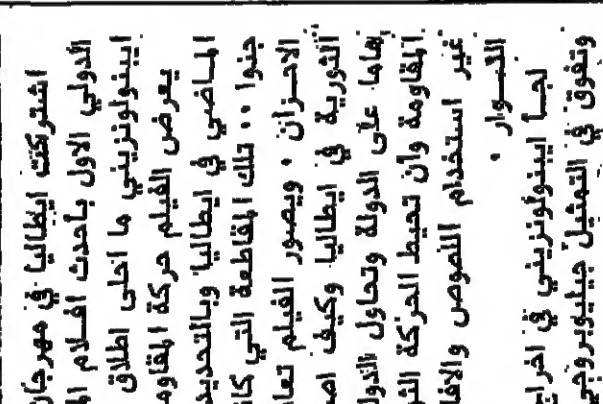 اشتركت ايطاليا في مهرجان
الدولي الاول بأحدث افلام
ايينولونزيني ما احلى اطلاق
يعرض الفيلم حركة
الماضي في ايطاليا وبالتحديد
جنوا .. تلك المقاطعة التي
الاحزان . ويصور الفيلم
الثورية في ايطاليا وكيف
هاما على الدولة وتحاول
المقاومة وأن تحيط الحركة
غير استخدام اللصوص
الثوار .
لجأ ايينولونزيني في
وتفوق في التمثيل جيليوبروجي